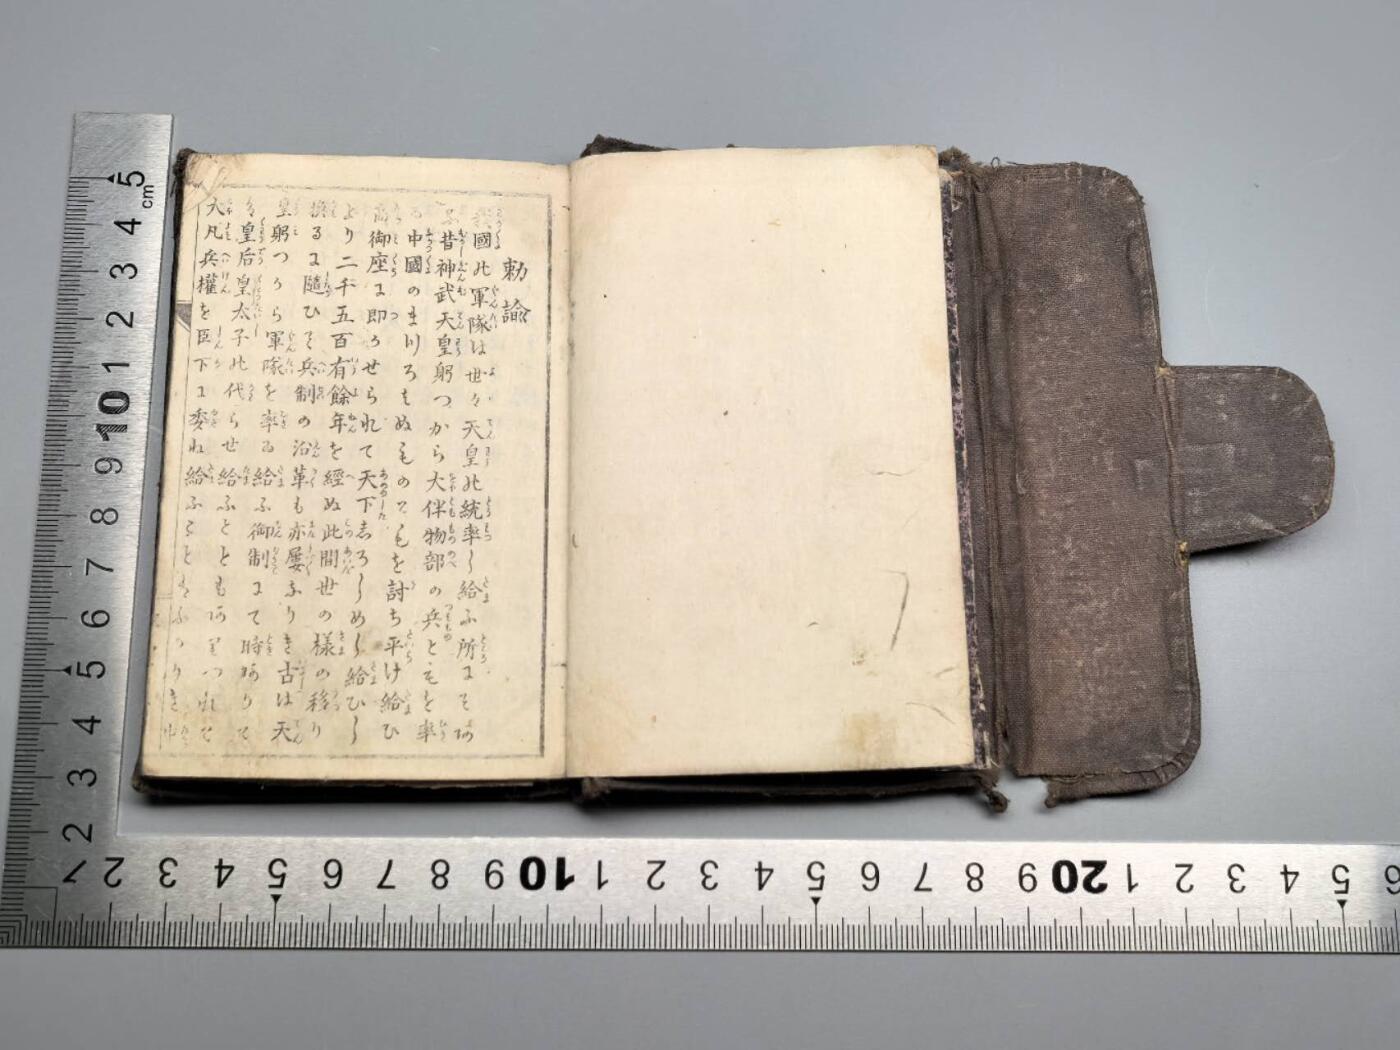 勅諭
我國の軍隊は世々天皇の統率し給ふ所にそあ
る昔神武天皇躬つから大伴物部の兵ともを率
ゐ中國のまつろはぬものともを討ち平け給ひ
高御座に即かせられて天下しろしめし給ひし
より二千五百有餘年を經ぬ此間世の樣の移り
換るに隨ひて兵制の沿革も亦屢なりき古は天
皇躬つから軍隊を率ゐ給ふ御制にて時ありて
は皇后皇太子の代らせ給ふこともありつれと
大凡兵權を臣下に委ね給ふことはなかりき中
5 cm 4 3 2 1 10 9 8 7 6 5 4 3 2
1 2 3 4 5 6 7 8 9 10 1 2 3 4 5 6 7 8 9 20 1 2 3 4 5 6